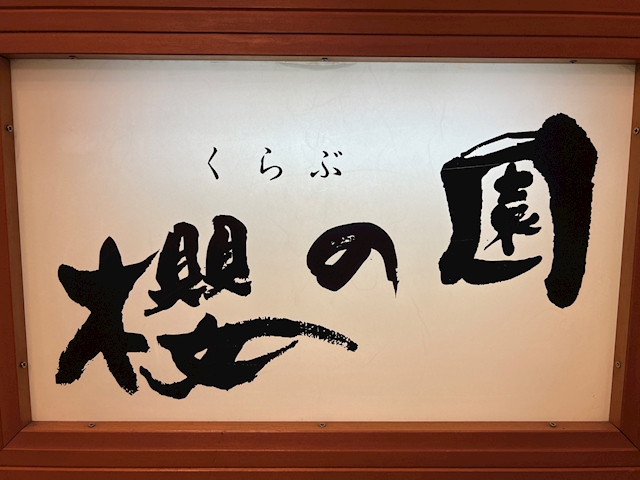 くらぶ
櫻の園